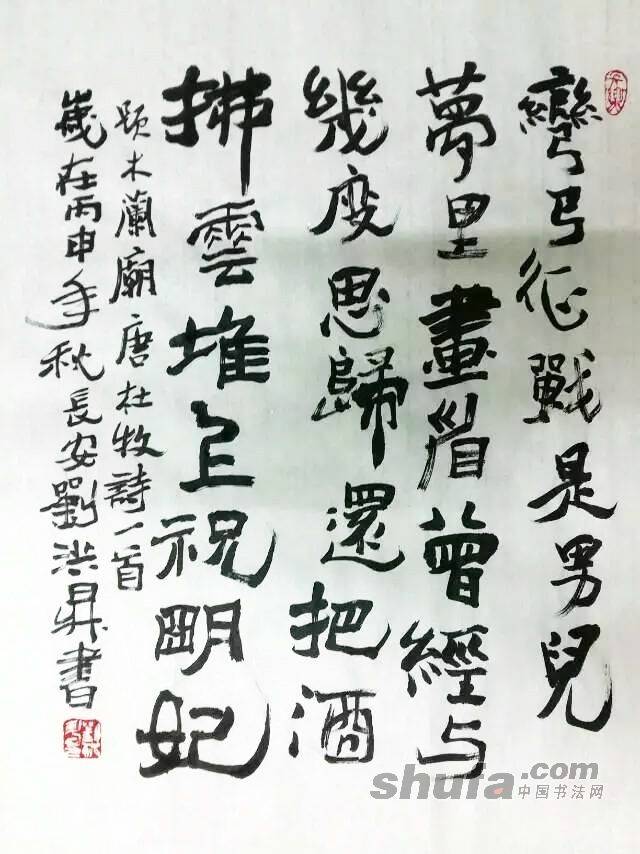 彎弓征戰是男兒
夢里畫眉曾經与
幾度思歸還把酒
拂雲堆上祝明妃
题木蘭廟唐杜牧詩一首
歲在丙申年秋長安劉洪昇書
shufa.com
中国书法网